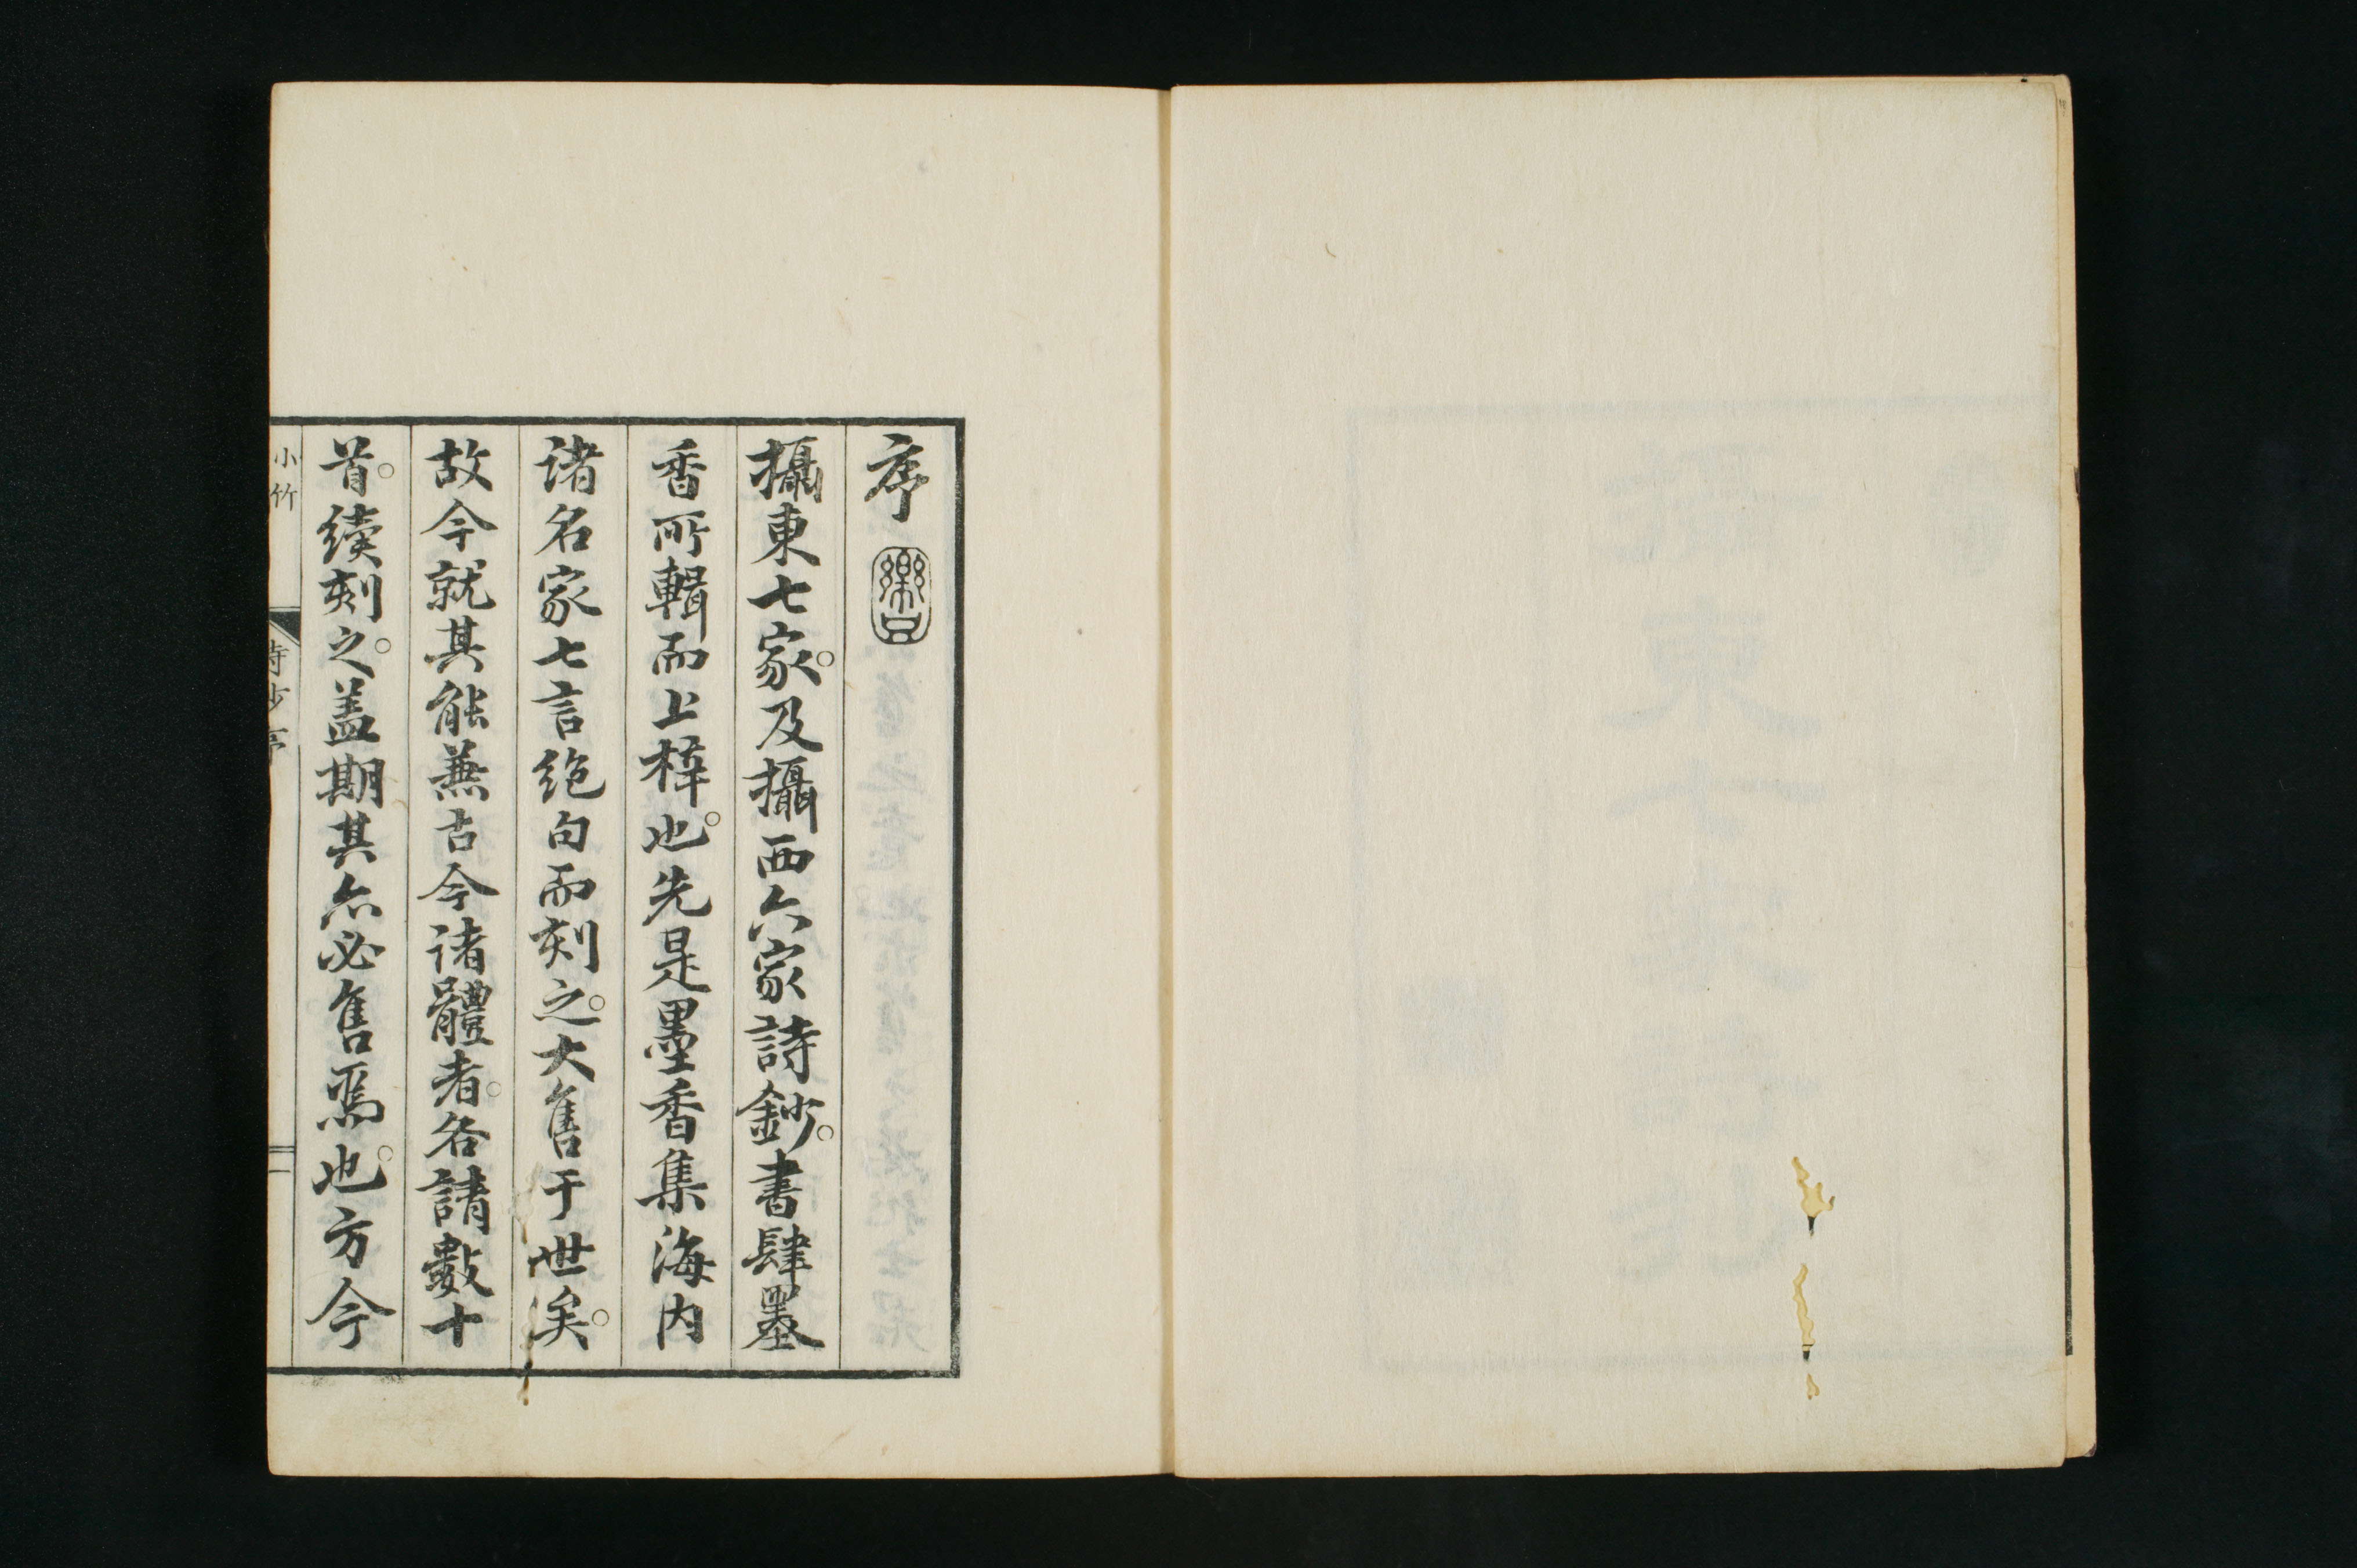 序
攝東七家。及攝西六家詩鈔。書肆墨
香所輯而上梓也。先是墨香集海内
諸名家七言絶句而刻之。大售于世矣。
故今就其能兼古今諸體者。各請數十
首。續刻之。蓋期其亦必售焉也。方今
小竹